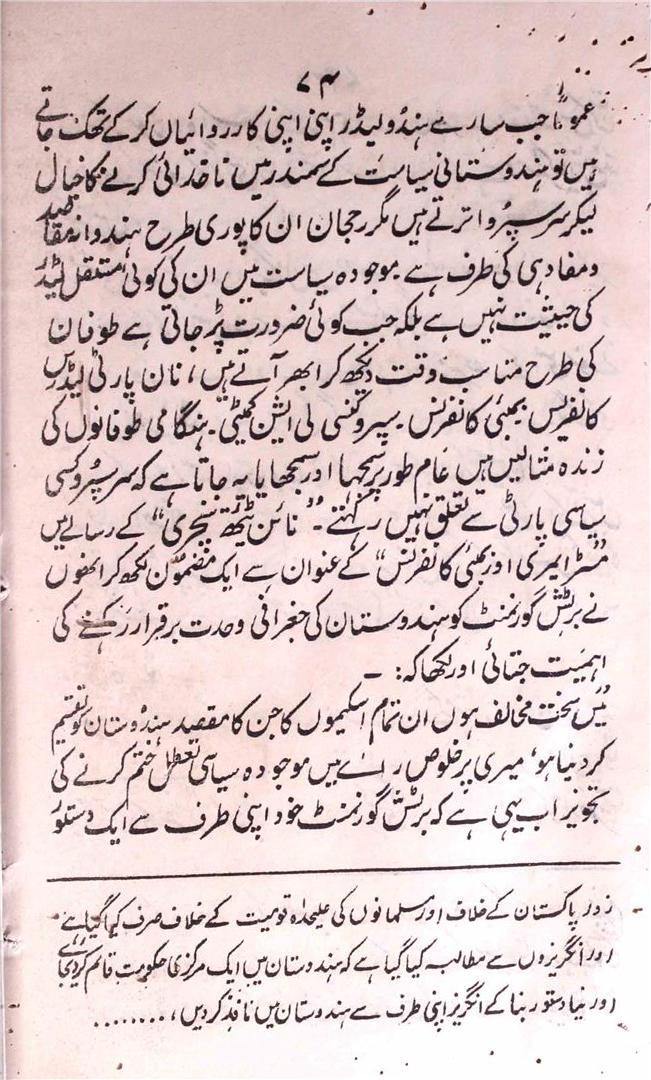 ۷۴
عموماً جب سارے ہندو لیڈر اپنی اپنی کارروائیاں کرکے تھک جاتے
ہیں تو ہندوستانی سیاست کے سمندر میں ناخدائی کرنے کا خیال
لیکر سر سپرو اترتے ہیں مگر رجحان ان کا پوری طرح ہندوانہ مقاصد
و مفاد ہی کی طرف ہے۔ موجودہ سیاست میں ان کی کوئی مستقل لیڈر
کی حیثیت نہیں ہے بلکہ جب کوئی ضرورت پڑ جاتی ہے طوفان
کی طرح مناسب وقت دیکھ کر ابھر آتے ہیں، نان پارٹی لیڈرس
کانفرنس بمبئی کانفرنس۔ سپرو کنسی لی ایشن کمیٹی۔ ہنگامی طوفانوں کی
زندہ مثالیں ہیں عام طور پر سمجھا اور سمجھایا یہ جاتا ہے کہ سر سپرو کسی
سیاسی پارٹی سے تعلق نہیں رکھتے۔ "نائن ٹینتھ سنچری" کے رسالے میں
"مسٹر ایمری اور بمبئی کانفرنس" کے عنوان سے ایک مضمون لکھ کر انھوں
نے برٹش گورنمنٹ کو ہندوستان کی جغرافی وحدت برقرار رکھنے کی
اہمیت جتائی اور لکھا کہ: ۔
"میں سخت مخالف ہوں ان تمام اسکیموں کا جن کا مقصد ہندوستان کو تقسیم
کردینا ہو، میری پرخلوص رائے میں موجودہ سیاسی تعطل ختم کرنے کی
تجویز اب یہی ہے کہ برٹش گورنمنٹ خود اپنی طرف سے ایک دستور
زور پاکستان کے خلاف اور مسلمانوں کی علیحدہ قومیت کے خلاف صرف کیا گیا ہے
اور انگریزوں سے مطالبہ کیا گیا ہے کہ ہندوستان میں ایک مرکزی حکومت قائم کردیجائے
اور نیا دستور بنا کے انگریز اپنی طرف سے ہندوستان میں نافذ کردیں، ........